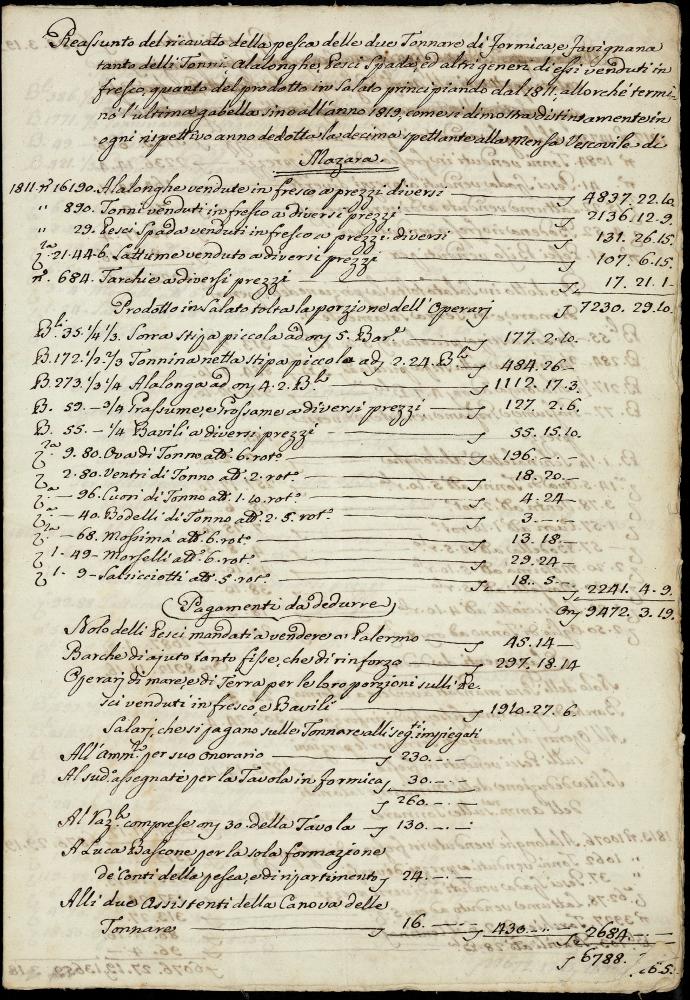 Reassunto del ricavato della pesca delle due Tonnare di Formica, e Favignana
tanto delli Tonni, Alalonghe, Pesci Spada, ed altri generi di essi venduti in
fresco, quanto del prodotto in Salato principiando dal 1811, allorchè termi-
nò l'ultima gabella sino all'anno 1819, come si dimostra distintamente in
ogni rispettivo anno dedotta la decima spettante alla Mensa Vescovile di
Mazara.
1811. n.° 16190. Alalonghe vendute in fresco a prezzi diversi 4837. 22. 10.
" 890. Tonni venduti in fresco a diversi prezzi 2136. 12. 9.
" 29. Pesci Spada venduti in fresco a prezzi diversi 131. 26. 15.
21. 44. 6. Lattume venduto a diversi prezzi 107. 6. 15.
n.° 684. Tarchie a diversi prezzi 17. 21. 1-
Prodotto in Salato tolta la porzione dell'Operarj 7230. 29. 10.
B.li 35. 1/4 1/3. Sorra stipa piccola ad onj 5. Bar.e 177. 2. 10.
B. 172. 1/2. 2/3 Tonnina netta stipa piccola adj 2. 24. B.le 484. 26-
B. 273. 1/3 1/4 Alalonga ad onj 4. 2. B.le 1112. 17. 3.
B. 59. - 3/4 Grassume, e Grossame a diversi prezzi 127. 2. 6.
B. 55. - 1/4 Bavili a diversi prezzi 55. 15. 10.
9. 80. Ova di Tonno att. 6. rot.° 196. - -
2. 80. Ventri di Tonno att. 2. rot.° 18. 20. -
- 96. Cuori di Tonno att. 1. 10. rot.° 4. 24 -
- 40. Bodelli di Tonno att. 2. 5. rot.° 3. - -
- 68. Mossimá att. 6. rot.° 13. 18. -
1. 49 - Morselli att. 6. rot.° 29. 24 -
1. 9 - Salsicciotti att. 5. rot.° 18. 5. - 2241. 4. 9.
Pagamenti da dedurre Onj 9472. 3. 19.
Nolo delli Pesci mandati a vendere a Palermo 45. 14 -
Barche di ajuto tanto fisse, che di rinforzo 297. 18. 14
Operarj di mare, e di Terra per le loro porzioni sulli Pe-
sci venduti in fresco, e Bavili 1910. 27. 6.
Salarj, che si pagano sulle Tonnare alli seg.ti impiegati
All'Amm.re per suo onorario 230. - . -
Al sud.° assegnati per la Tavola in Formica 30. - . -
260. - . -
Al Raz.le comprese onj 30. della Tavola 130. - . -
A Luca Bascone per la sola formazione
de' Conti della pesca, e di ripartimento 24. - . -
Alli due Assistenti della Canova delle
Tonnare 16. - . - 430. - . - 2684. - . -
6788. 26. 5.